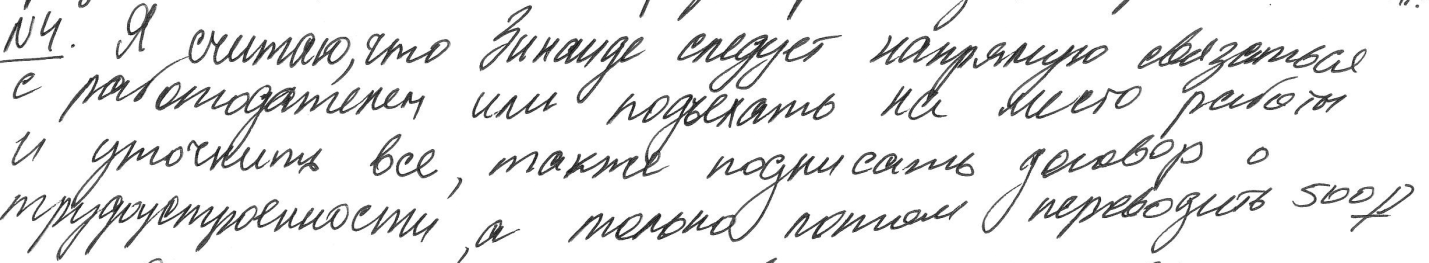 №4. Я считаю, что Зинаиде следует напрямую связаться
с работодателем или подъехать на место работы
и уточнить все, также подписать договор о
трудоустроенности, а только потом переводить 500₽